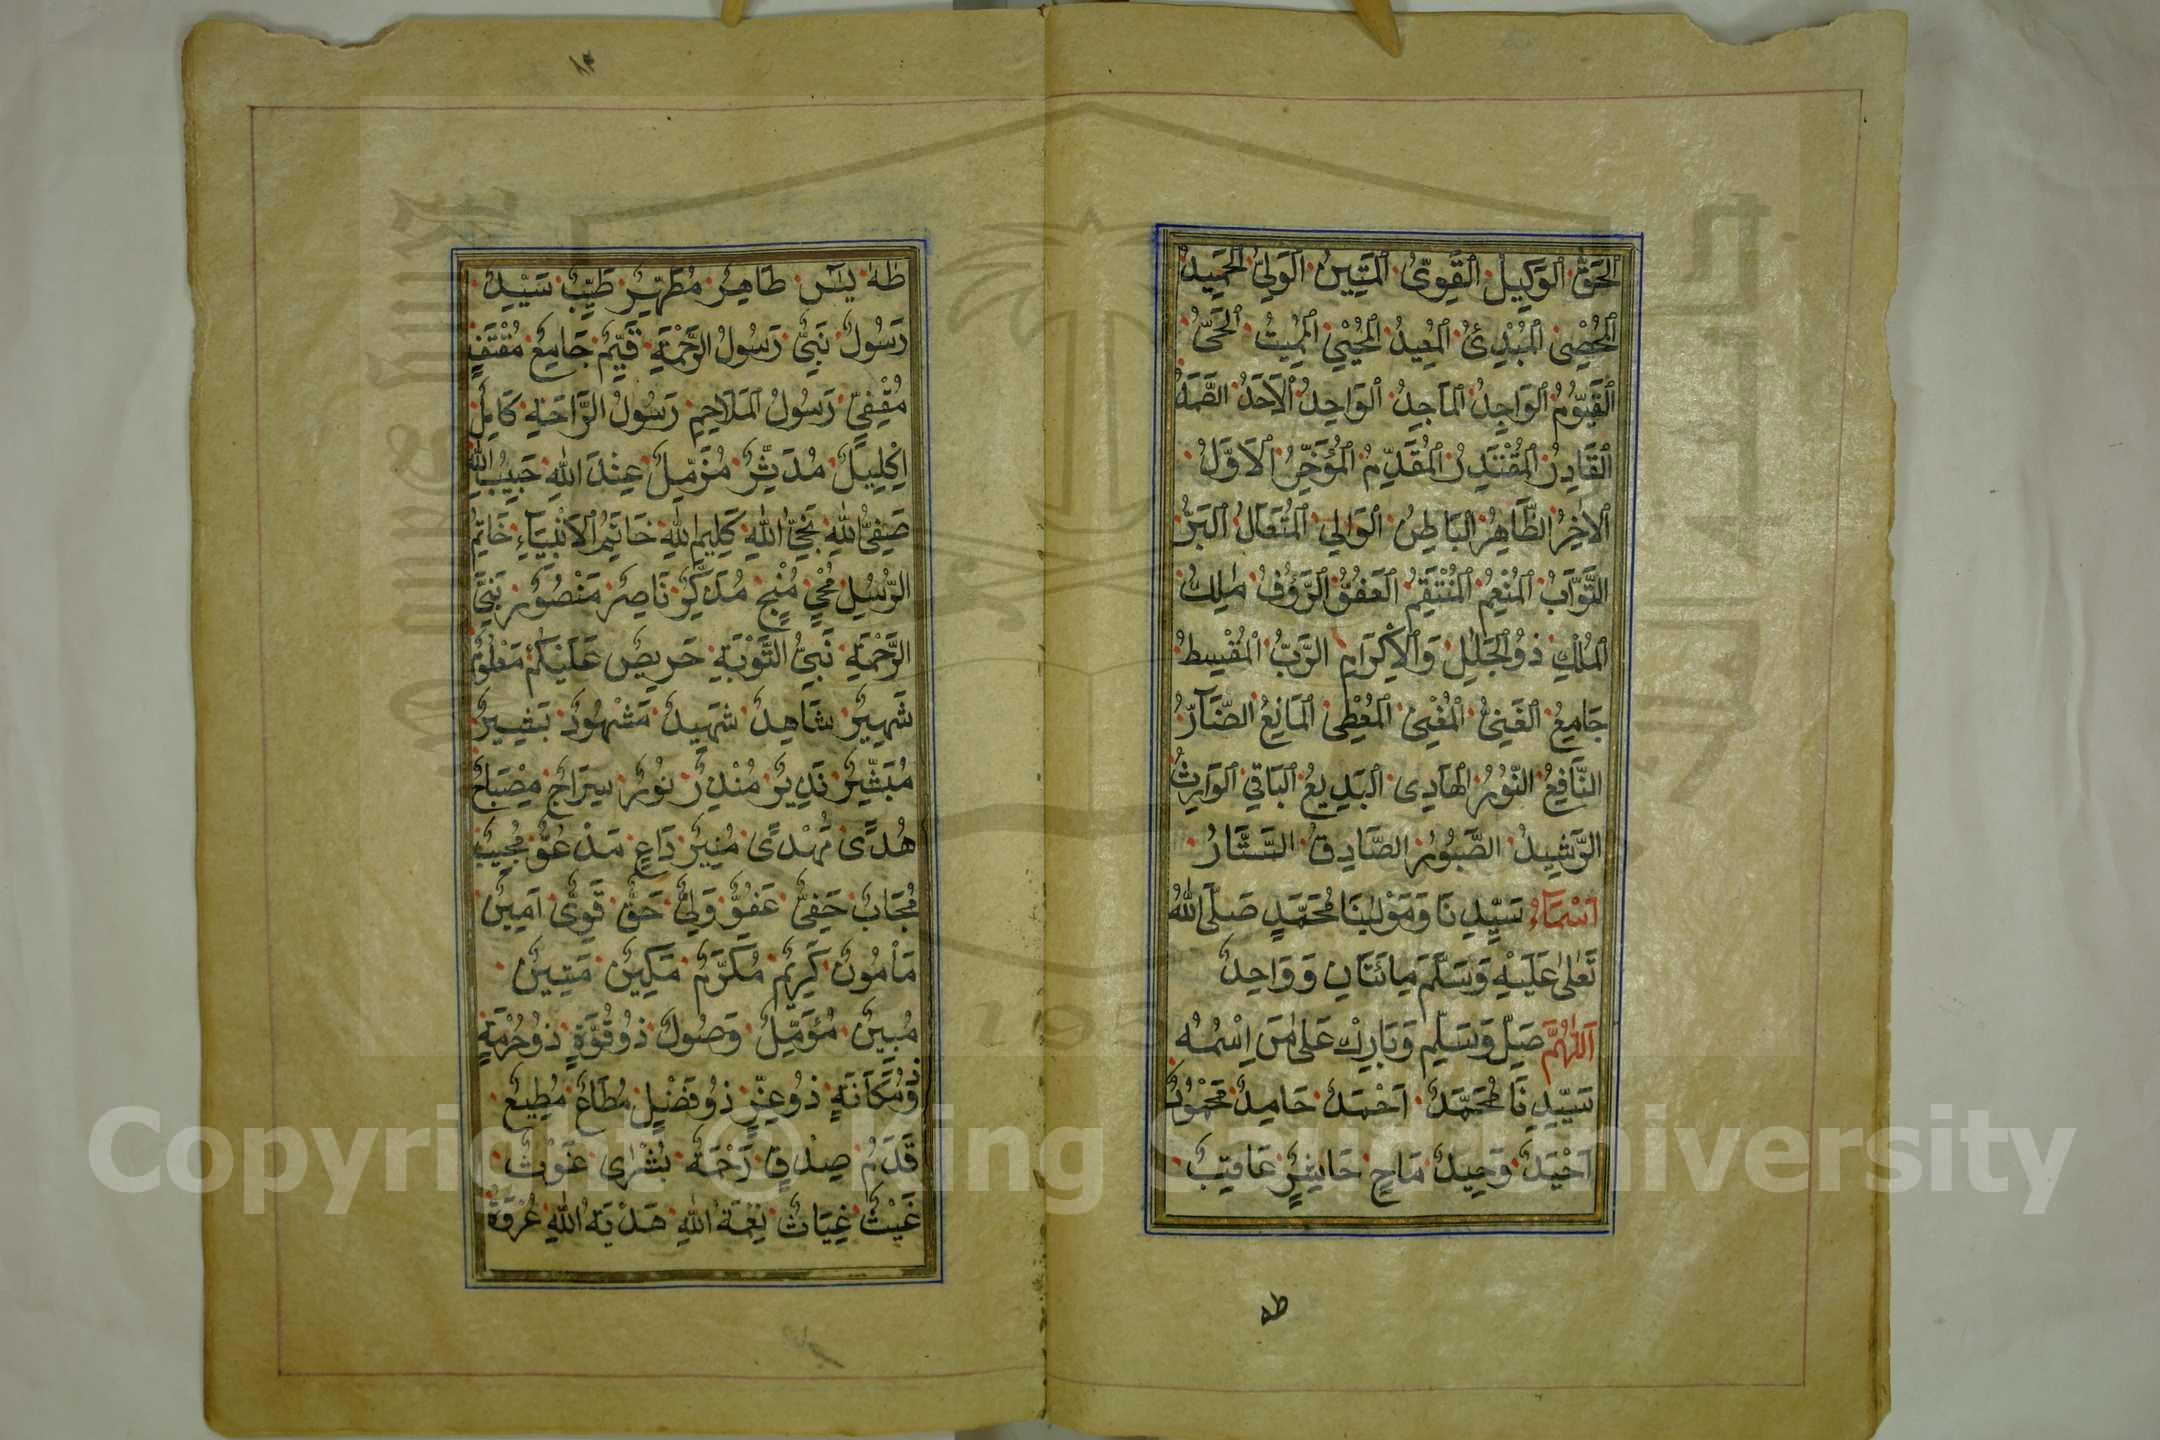 الحَقُّ الوَكِيلُ القَوِىُّ المَتِينُ الوَلِىُّ الحَمِيدُ
المُحْصِى المُبْدِئُ المُعِيدُ المُحْيِي المُمِيتُ الحَىُّ
القَيُّومُ الوَاجِدُ المَاجِدُ الوَاحِدُ الاَحَدُ الصَّمَدُ
القَادِرُ المُقْتَدِرُ المُقَدِّمُ المُؤَخِّرُ الاَوَّلُ
الاٰخِرُ الظَّاهِرُ البَاطِنُ الوَالِي المُتَعَالُ البَرُّ
التَّوَّابُ المُنْعِمُ المُنْتَقِمُ العَفُوُّ الرَّؤُفُ مٰلِكُ
المُلْكِ ذُو الجَلٰلِ وَالاِكْرَامِ الرَّبُّ المُقْسِطُ
جَامِعُ الغَنِىُّ المُغْنِى المُعْطِى المَانِعُ الضَّآرُّ
النَّافِعُ النُّوْرُ الهَادِى البَدِيعُ البَاقِي الوَارِثُ
الرَّشِيدُ الصَّبُوْرُ الصَّادِقُ السَّتَّارُ
اَسْمَآءُ سَيِّدِنَا وَمَوْلٰينَا مُحَمَّدٍ صَلَّى اللّٰهُ
تَعٰلٰى عَلَيْهِ وَسَلَّمَ مِائَتَانِ وَوَاحِدٌ
اَللّٰهُمَّ صَلِّ وَسَلِّمْ وَبَارِكْ عَلٰى مَنِ اسْمُهُ
سَيِّدِنَا مُحَمَّدٌ اَحْمَدٌ حَامِدٌ مَحْمُوْدٌ
اَحْيَدٌ وَحِيدٌ مَاحٍ حَاشِرٌ عَاقِبٌ
طه
طٰهٰ يٰسٓ طَاهِرٌ مُطَهِّرٌ طَيِّبٌ سَيِّدٌ
رَسُولٌ نَبِىٌّ رَسُولُ الرَّحْمَةِ قَيِّمٌ جَامِعٌ مُقْتَفٍ
مُقْفِىٌّ رَسُولُ المَلَاحِمِ رَسُولُ الرَّاحَةِ كَامِلٌ
اِكْلِيلٌ مُدَّثِّرٌ مُزَّمِّلٌ عَبْدُ اللّٰهِ حَبِيبُ اللّٰهِ
صَفِىُّ اللّٰهِ نَجِىُّ اللّٰهِ كَلِيمُ اللّٰهِ خَاتِمُ الاَنْبِيَآءِ خَاتِمُ
الرُّسُلِ مُحْيٍ مُنْجٍ مُذَكِّرٌ نَاصِرٌ مَنْصُوْرٌ نَبِىُّ
الرَّحْمَةِ نَبِىُّ التَّوْبَةِ حَرِيصٌ عَلَيْكُمْ مَعْلُوْمٌ
شَهِيرٌ شَاهِدٌ شَهِيدٌ مَشْهُوْدٌ بَشِيرٌ
مُبَشِّرٌ نَذِيرٌ مُنْذِرٌ نُوْرٌ سِرَاجٌ مِصْبَاحٌ
هُدًى مَهْدِىٌّ مُنِيرٌ دَاعٍ مَدْعُوٌّ مُجِيبٌ
مُجَابٌ حَفِىٌّ عَفُوٌّ وَلِىٌّ حَقٌّ قَوِىٌّ اَمِينٌ
مَأْمُونٌ كَرِيمٌ مُكَرَّمٌ مَكِينٌ مَتِينٌ
مُبِينٌ مُؤَمِّلٌ وَصُولٌ ذُوقُوَّةٍ ذُوحُرْمَةٍ
ذُومَكَانَةٍ ذُوعِزٍّ ذُوفَضْلٍ مُطَاعٌ مُطِيعٌ
قَدَمُ صِدْقٍ رَحْمَةٌ بُشْرٰى غَوْثٌ
غَيْثٌ غِيَاثٌ نِعْمَةُ اللّٰهِ هَدْيَةُ اللّٰهِ عُرْوَةٌ
Copyright © King Saud University